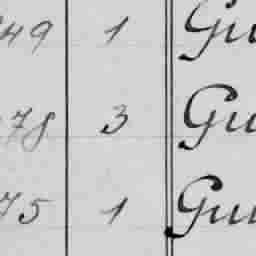 49 1 Gu
78 3 Gu
75 1 Gu